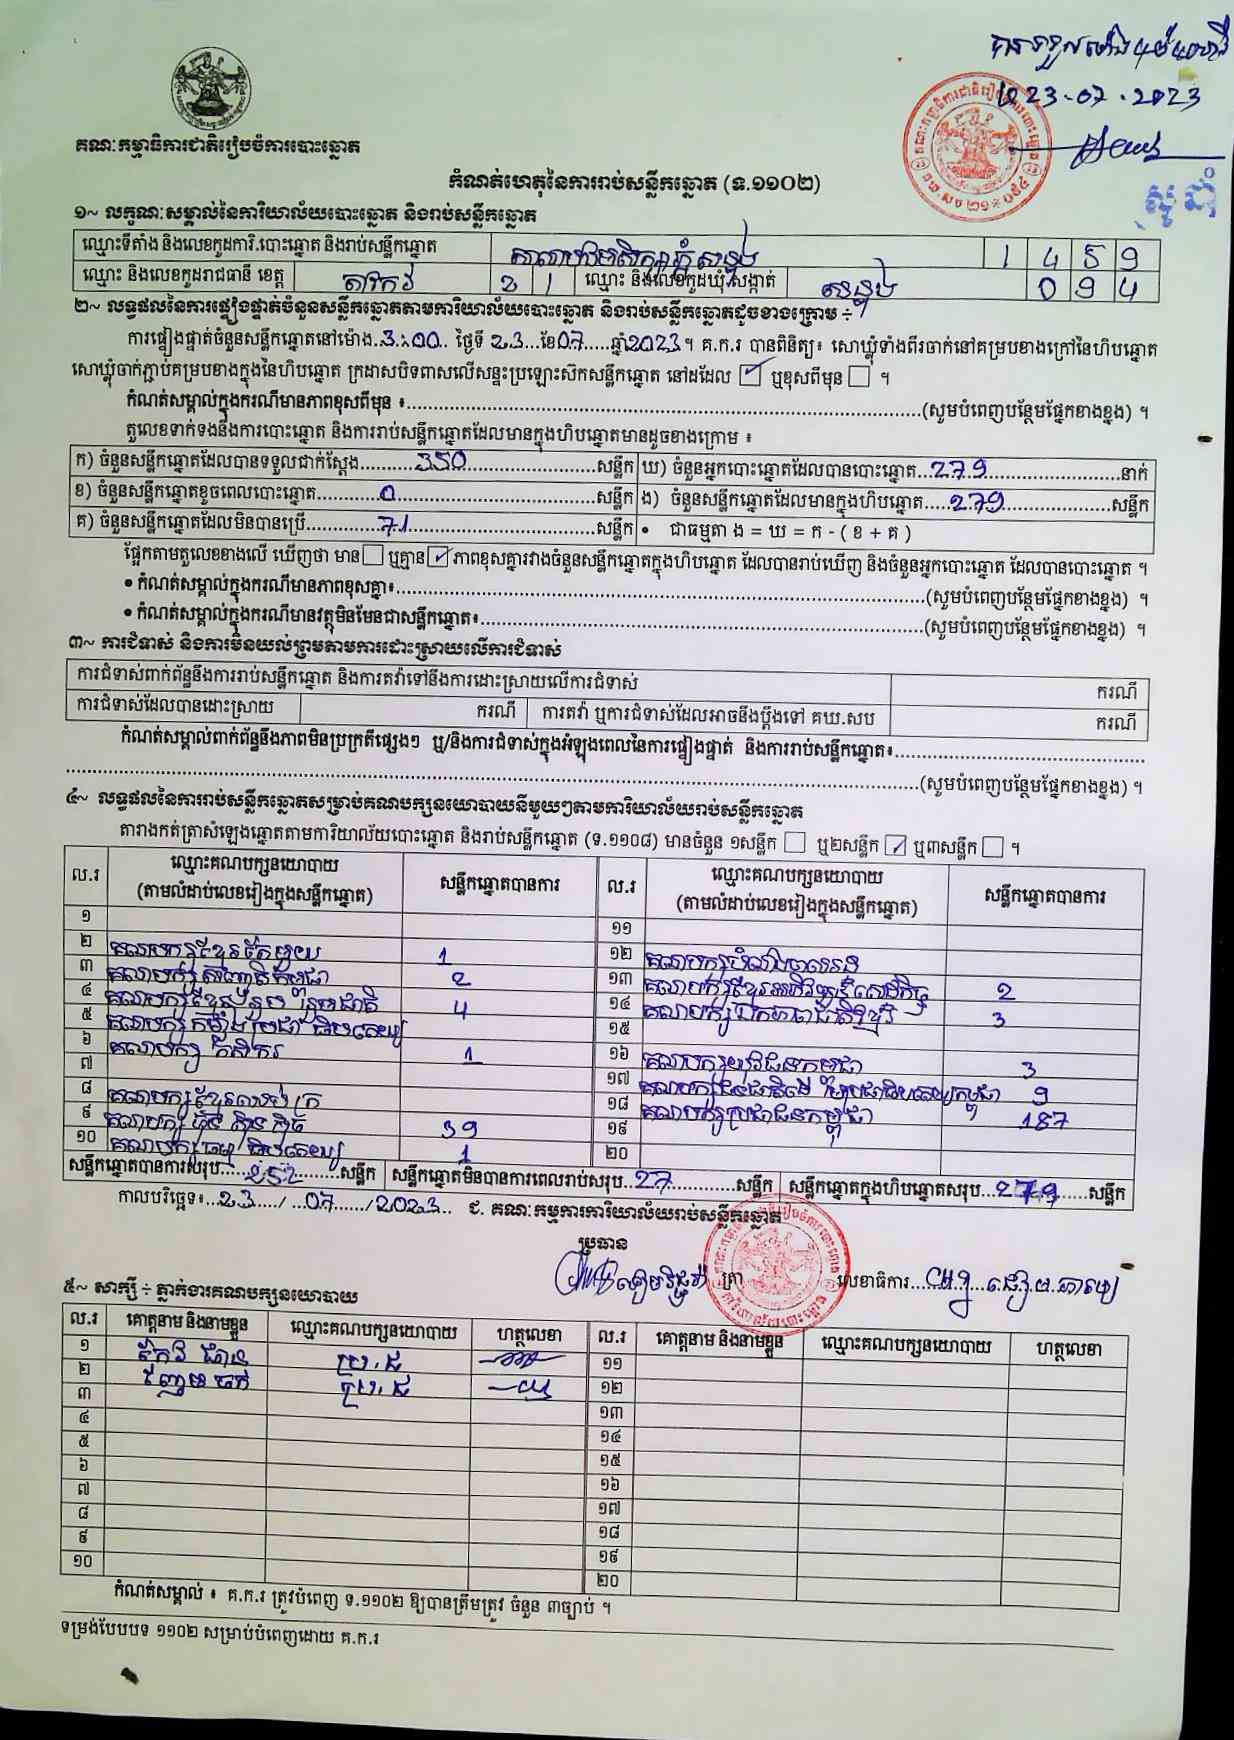 23-07-2023
គណៈកម្មាធិការជាតិរៀបចំការបោះឆ្នោត
កំណត់ហេតុនៃការរាប់សន្លឹកឆ្នោត (ទ.១១០២)
១~ លក្ខណៈសម្គាល់នៃការិយាល័យបោះឆ្នោត និងរាប់សន្លឹកឆ្នោត
ឈ្មោះទីតាំង និងលេខកូដការិ.បោះឆ្នោត និងរាប់សន្លឹកឆ្នោត 1459
ឈ្មោះ និងលេខកូដរាជធានី ខេត្ត តាកែវ 21 ឈ្មោះ និងលេខកូដឃុំ.សង្កាត់ 094
២~ លទ្ធផលនៃការផ្ទៀងផ្ទាត់ចំនួនសន្លឹកឆ្នោតតាមការិយាល័យបោះឆ្នោត និងរាប់សន្លឹកឆ្នោតដូចខាងក្រោម ÷
ការផ្ទៀងផ្ទាត់ចំនួនសន្លឹកឆ្នោតនៅម៉ោង..3:00.. ថ្ងៃទី 23...ខែ07.....ឆ្នាំ2023។ គ.ក.រ បានពិនិត្យ៖ សោឃ្លុំទាំងពីរចាក់នៅគម្របខាងក្រៅនៃហិបឆ្នោត
សោឃ្លុំចាក់ភ្ជាប់គម្របខាងក្នុងនៃហិបឆ្នោត ក្រដាសបិទពាសលើសន្ទះប្រឡោះស៊កសន្លឹកឆ្នោត នៅដដែល ☑ ឬខុសពីមុន ☐ ។
កំណត់សម្គាល់ក្នុងករណីមានភាពខុសពីមុន ៖..........(សូមបំពេញបន្ថែមផ្នែកខាងខ្នង) ។
តួលេខទាក់ទងនឹងការបោះឆ្នោត និងការរាប់សន្លឹកឆ្នោតដែលមានក្នុងហិបឆ្នោតមានដូចខាងក្រោម ៖
ក) ចំនួនសន្លឹកឆ្នោតដែលបានទទួលជាក់ស្តែង..........350..........សន្លឹក ឃ) ចំនួនអ្នកបោះឆ្នោតដែលបានបោះឆ្នោត...279..........នាក់
ខ) ចំនួនសន្លឹកឆ្នោតខូចពេលបោះឆ្នោត..........0..........សន្លឹក ង) ចំនួនសន្លឹកឆ្នោតដែលមានក្នុងហិបឆ្នោត.....279..........សន្លឹក
គ) ចំនួនសន្លឹកឆ្នោតដែលមិនបានប្រើ..........71..........សន្លឹក • ជាធម្មតា ង = ឃ = ក - ( ខ + គ )
ផ្អែកតាមតួលេខខាងលើ ឃើញថា មាន ☐ ឬគ្មាន ☑ ភាពខុសគ្នារវាងចំនួនសន្លឹកឆ្នោតក្នុងហិបឆ្នោត ដែលបានរាប់ឃើញ និងចំនួនអ្នកបោះឆ្នោត ដែលបានបោះឆ្នោត ។
• កំណត់សម្គាល់ក្នុងករណីមានភាពខុសគ្នា៖..........(សូមបំពេញបន្ថែមផ្នែកខាងខ្នង) ។
• កំណត់សម្គាល់ក្នុងករណីមានវត្ថុមិនមែនជាសន្លឹកឆ្នោត៖..........(សូមបំពេញបន្ថែមផ្នែកខាងខ្នង) ។
៣~ ការជំទាស់ និងការមិនយល់ព្រមតាមការដោះស្រាយលើការជំទាស់
ការជំទាស់ពាក់ព័ន្ធនឹងការរាប់សន្លឹកឆ្នោត និងការតវ៉ាទៅនឹងការដោះស្រាយលើការជំទាស់ ករណី
ការជំទាស់ដែលបានដោះស្រាយ ករណី ការតវ៉ា ឬការជំទាស់ដែលអាចនឹងប្តឹងទៅ គឃ.សប ករណី
កំណត់សម្គាល់ពាក់ព័ន្ធនឹងភាពមិនប្រក្រតីផ្សេងៗ ឬ/និងការជំទាស់ក្នុងអំឡុងពេលនៃការផ្ទៀងផ្ទាត់ និងការរាប់សន្លឹកឆ្នោត៖..........
..........(សូមបំពេញបន្ថែមផ្នែកខាងខ្នង) ។
៤~ លទ្ធផលនៃការរាប់សន្លឹកឆ្នោតសម្រាប់គណបក្សនយោបាយនីមួយៗតាមការិយាល័យរាប់សន្លឹកឆ្នោត
តារាងកត់ត្រាសំឡេងឆ្នោតតាមការិយាល័យបោះឆ្នោត និងរាប់សន្លឹកឆ្នោត (ទ.១១០៨) មានចំនួន ១សន្លឹក ☐ ឬ២សន្លឹក ☑ ឬ៣សន្លឹក ☐ ។
ល.រ ឈ្មោះគណបក្សនយោបាយ (តាមលំដាប់លេខរៀងក្នុងសន្លឹកឆ្នោត) សន្លឹកឆ្នោតបានការ ល.រ ឈ្មោះគណបក្សនយោបាយ (តាមលំដាប់លេខរៀងក្នុងសន្លឹកឆ្នោត) សន្លឹកឆ្នោតបានការ
១ ១១
២ គណបក្សខ្មែរតែមួយ 1 ១២
៣ គណបក្ស 2 ១៣ គណបក្សខ្មែរអភិវឌ្ឍន៍សេដ្ឋកិច្ច 2
៤ គណបក្សខ្មែររួបរួមជាតិ 4 ១៤ គណបក្សឯកភាពជាតិខ្មែរ 3
៥ គណបក្សកម្លាំងប្រជាធិបតេយ្យ ១៥
៦ គណបក្សកសិករ 1 ១៦ គណបក្សយុវជនកម្ពុជា 3
៧ ១៧ គណបក្ស 9
៨ គណបក្សខ្មែរ ១៨ គណបក្សប្រជាជនកម្ពុជា 187
៩ គណបក្ស ហ្វ៊ុនស៊ិនប៉ិច 39 ១៩
១០ គណបក្សធម្មាធិបតេយ្យ 1 ២០
សន្លឹកឆ្នោតបានការសរុប.....252.....សន្លឹក សន្លឹកឆ្នោតមិនបានការពេលរាប់សរុប..27..........សន្លឹក សន្លឹកឆ្នោតក្នុងហិបឆ្នោតសរុប...279......សន្លឹក
កាលបរិច្ឆេទ៖...23...../...07....../2023.. ជ. គណៈកម្មការការិយាល័យរាប់សន្លឹកឆ្នោត
ប្រធាន
ត្រា លេខាធិការ
៥~ សាក្សី ÷ ភ្នាក់ងារគណបក្សនយោបាយ
ល.រ គោត្តនាម និងនាមខ្លួន ឈ្មោះគណបក្សនយោបាយ ហត្ថលេខា ល.រ គោត្តនាម និងនាមខ្លួន ឈ្មោះគណបក្សនយោបាយ ហត្ថលេខា
១ ប្រ.ជ ១១
២ ប្រ.ជ ១២
៣ ១៣
៤ ១៤
៥ ១៥
៦ ១៦
៧ ១៧
៨ ១៨
៩ ១៩
១០ ២០
កំណត់សម្គាល់ ៖ គ.ក.រ ត្រូវបំពេញ ទ.១១០២ ឱ្យបានត្រឹមត្រូវ ចំនួន ៣ច្បាប់ ។
ទម្រង់បែបបទ ១១០២ សម្រាប់បំពេញដោយ គ.ក.រ